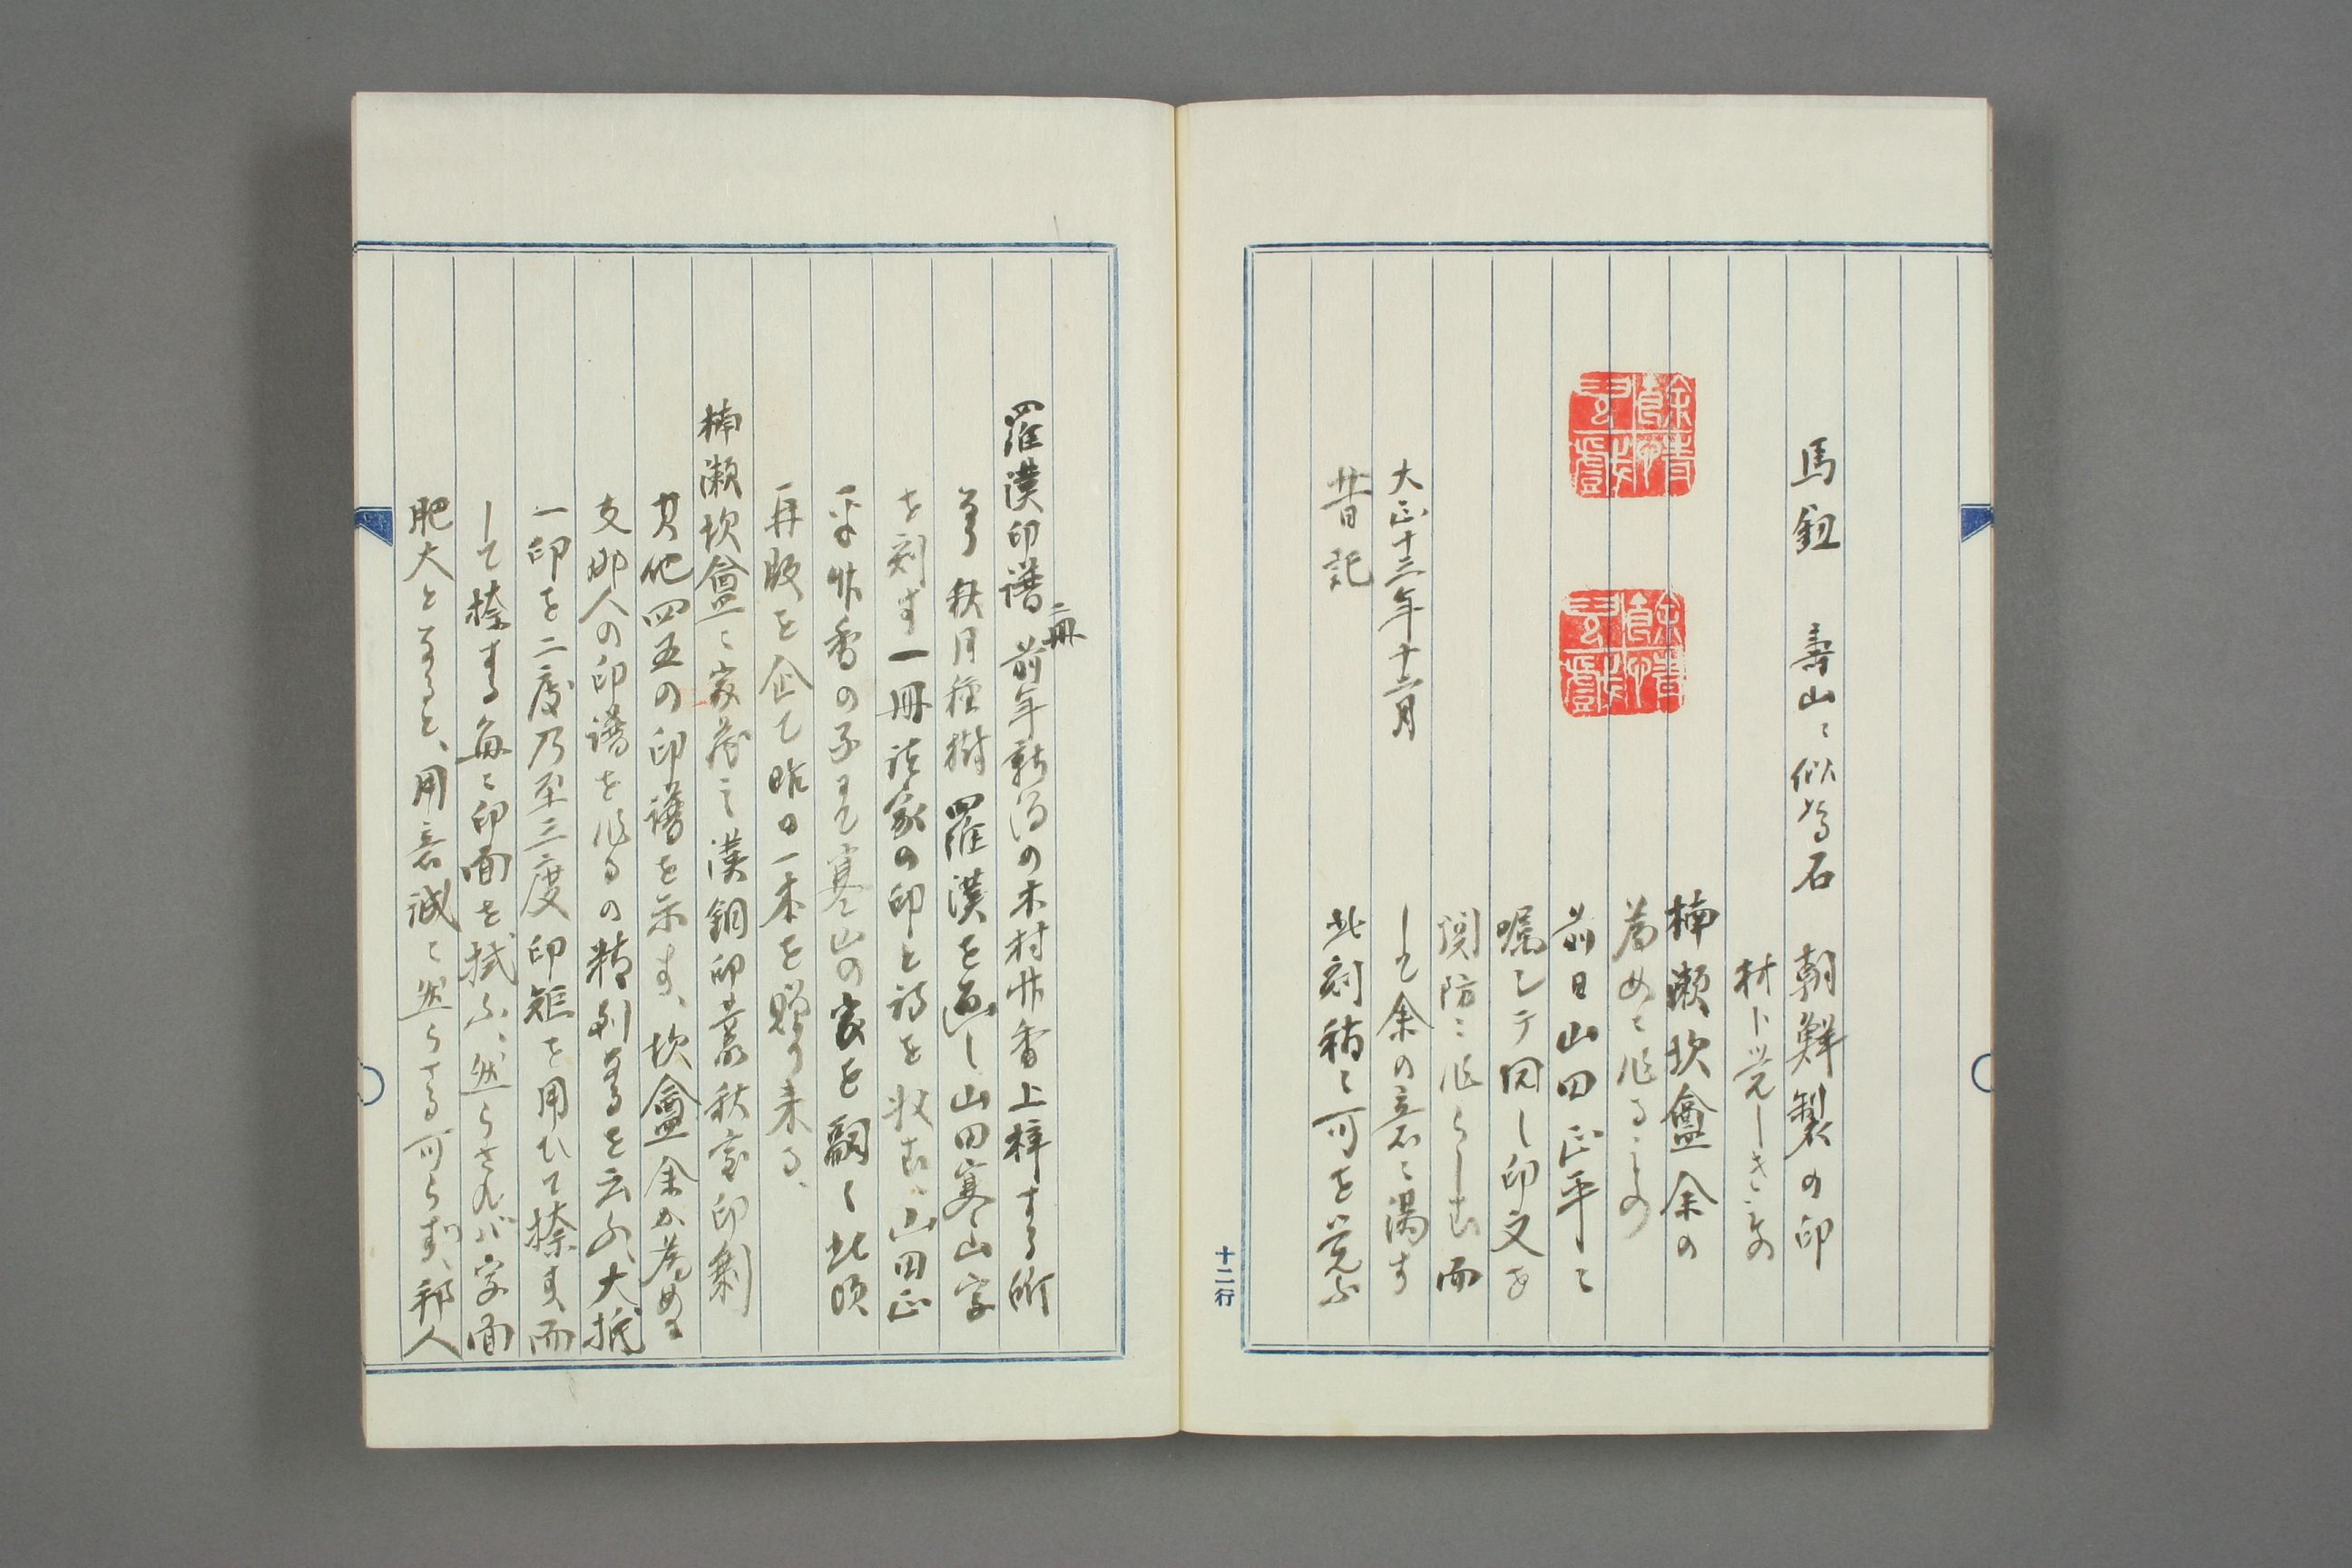 馬鈕 壽山ニ似たる石 朝鮮製の印
材ト覚しきもの
楠瀬坎盦余の
為めに作るもの
前日山田正平に
嘱して同し印文を
関防に作らしむ而
して余の意に満す
此刻稍に可を覚ふ
大正十三年十二月
昔記
十二行
羅漢印譜 二冊 前年新潟の木村竹香上梓する所
なり 秋月種樹羅漢を画し山田寒山字
を刻す一冊諸家の印と詩を收む、山田正
平竹香の子にて寒山の家を嗣く此頃
再版を企て昨の一本を贈り来る、
楠瀬坎盦ニ家蔵之漢銅印叢秋室印剩
其他四五の印譜を示す、坎盦余か為めに
支那人の印譜を作るの精到なるを云ふ、大抵
一印を二度乃至三度印矩を用ひて捺す而
して捺する毎ニ印面を拭ふ、然らされバ字面
肥大となると、用意誠ニ然らさる可らず、邦人